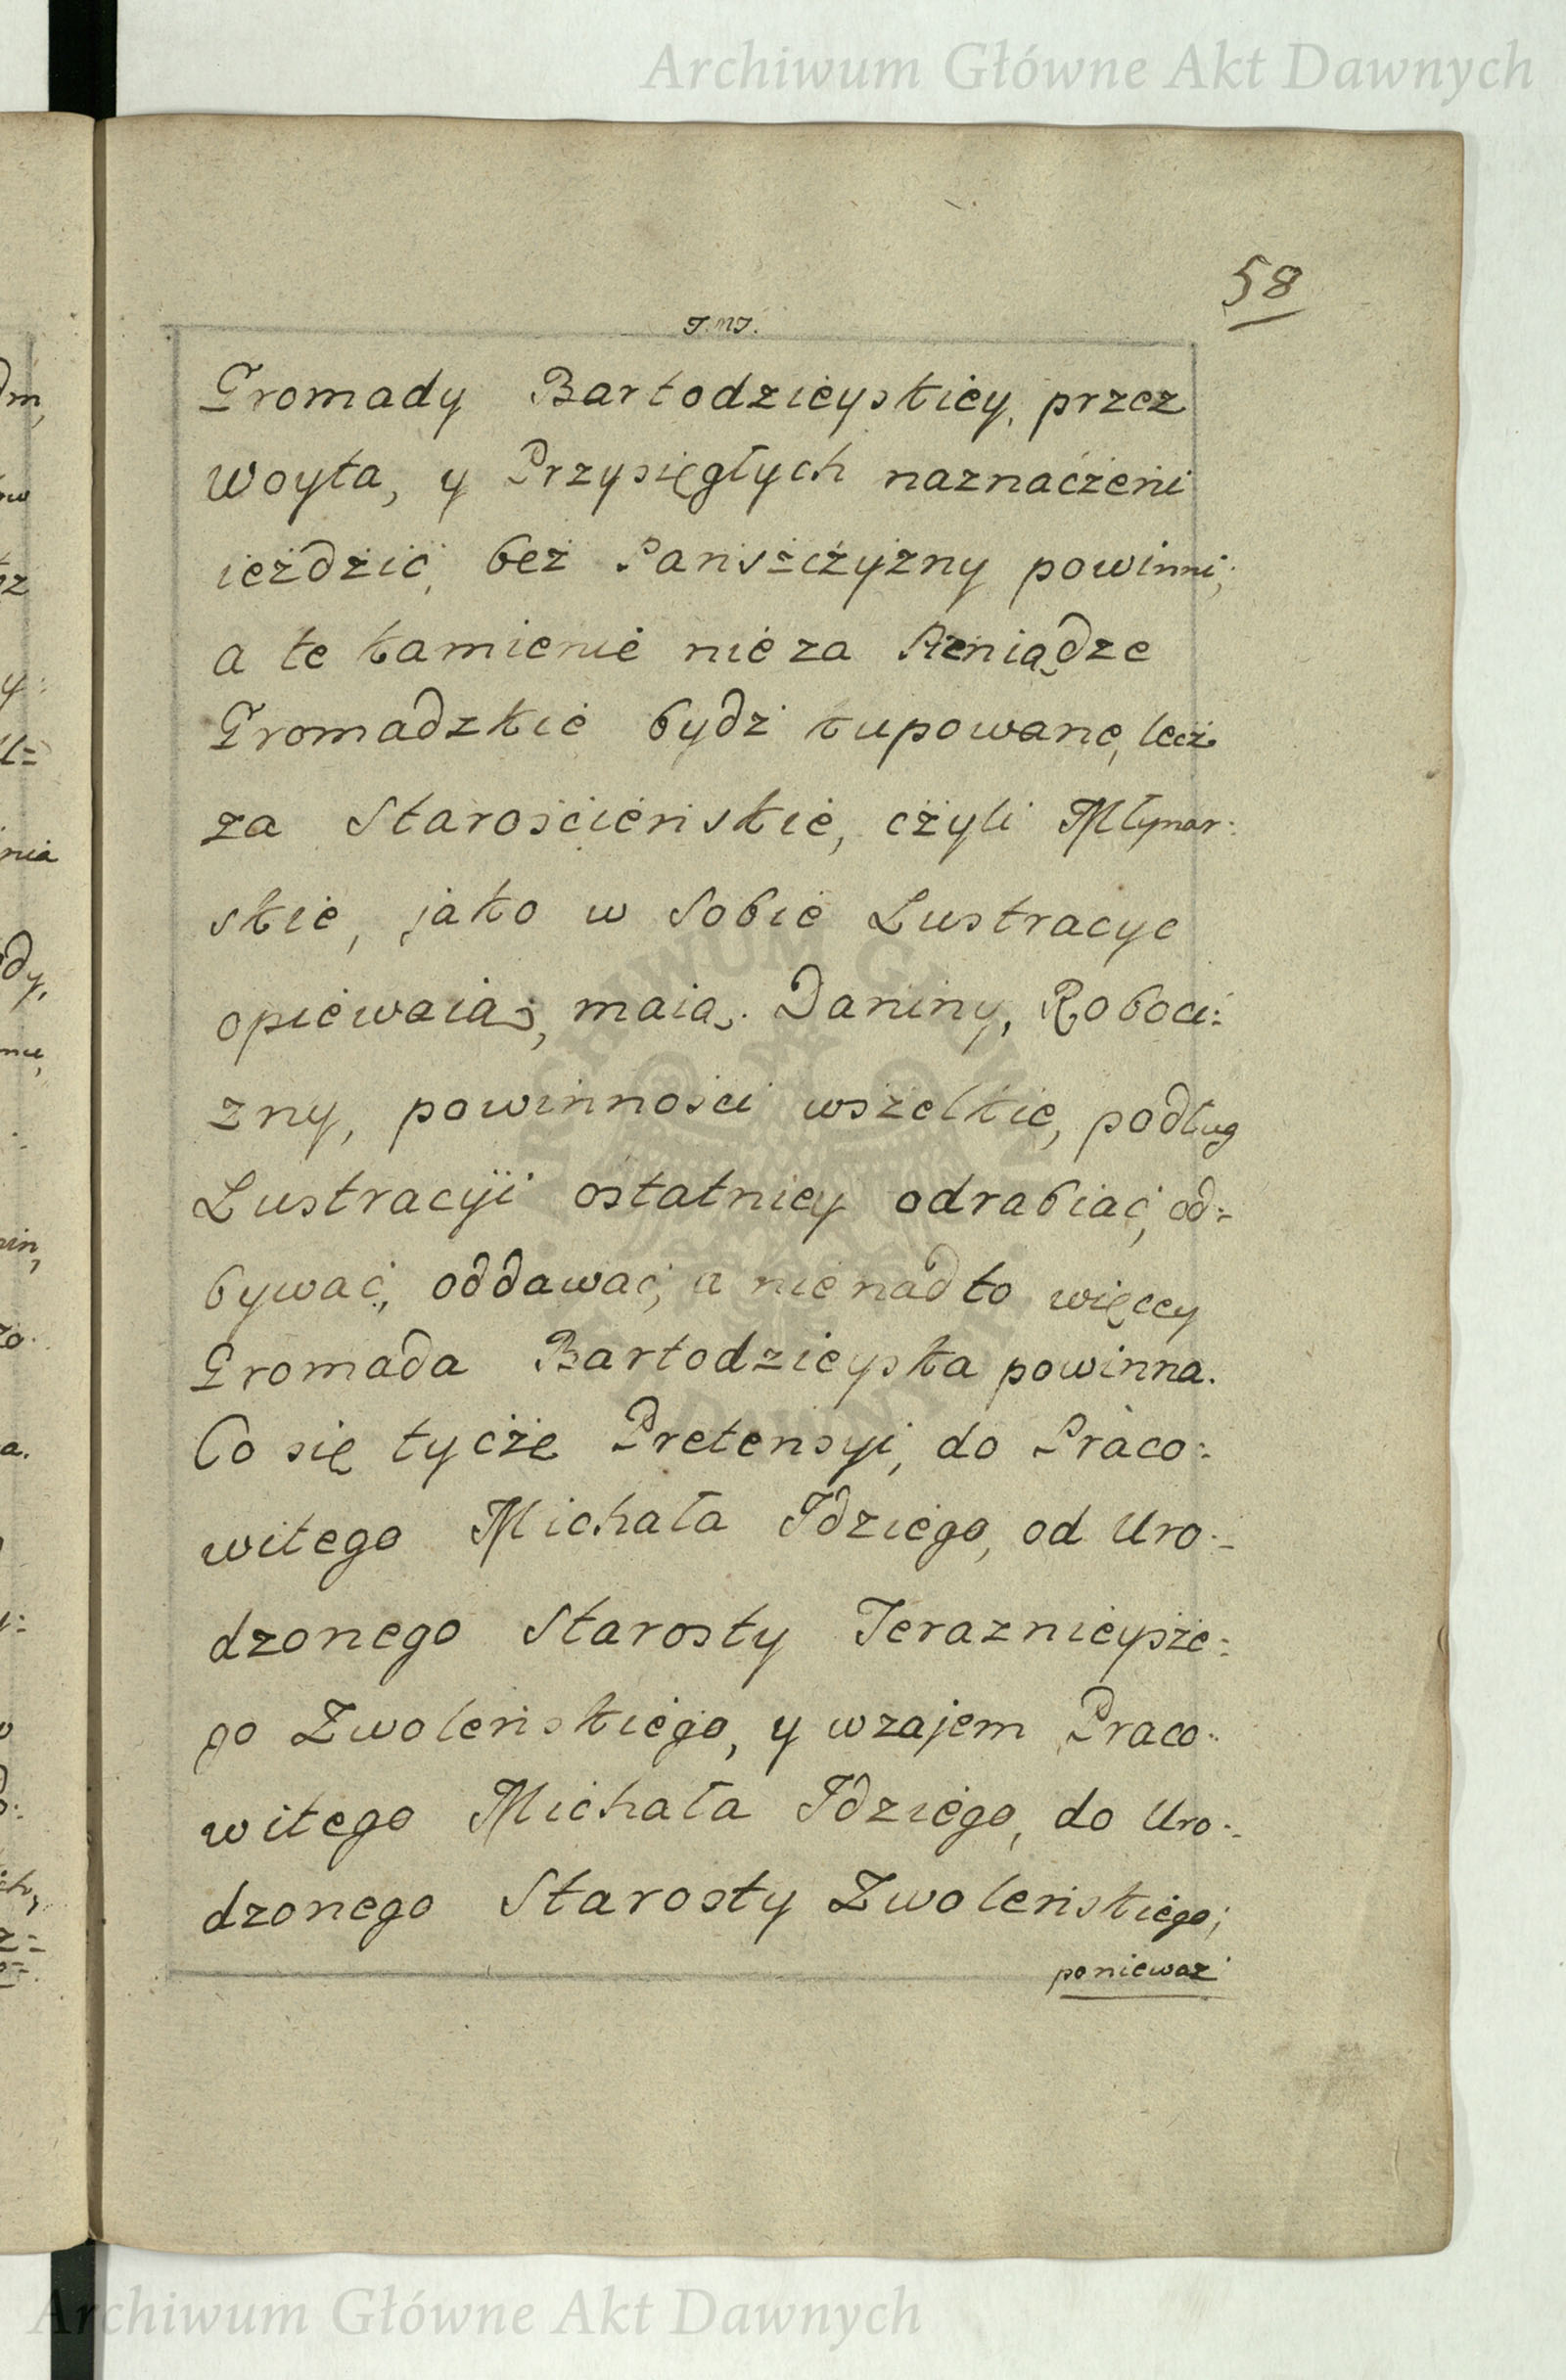 Archiwum Główne Akt Dawnych
58
J.M.J.
Gromady Bartodzieyskiey, przez
Woyta, y Przysięgłych naznaczeni
ieździć, bez Pańszczyzny powinni;
a te kamienie nie za Pieniądze
Gromadzkie bydź kupowane, lecz
za Starościeńskie, czyli Młynar:
skie, jako w Sobie Lustracye
opiewaią, maią. Daniny, Roboci:
zny, powinności wszelkie, podług
Lustracyi ostatniey odrabiać, od=
bywać, oddawać, a nie nad to więcey
Gromada Bartodzieyska powinna.
Co się tycze Pretensyi, do Praco:
witego Michała Idziego, od Uro:
dzonego Starosty Teraznieysze:
go Zwoleńskiego, y wzajem Praco:
witego Michała Idziego, do Uro:
dzonego Starosty Zwoleńskiego;
ponieważ
Archiwum Główne Akt Dawnych